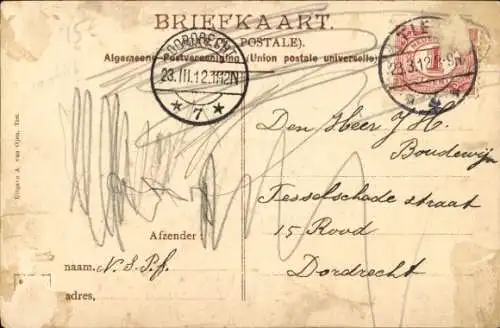 15
BRIEFKAART.
POSTALE).
Algemeene Postvereeniging (Union postale universelle)
DORDRECHT
23.III.12.1-12N
7
TIE
23.3.12.8-9N
1
Den Heer J. H.
Boudewijn
Tesselschade straat
15 Rood
Dordrecht
Afzender
naam. N. S. P. f.
adres,
Uitgave A. van Ojen, Tiel.